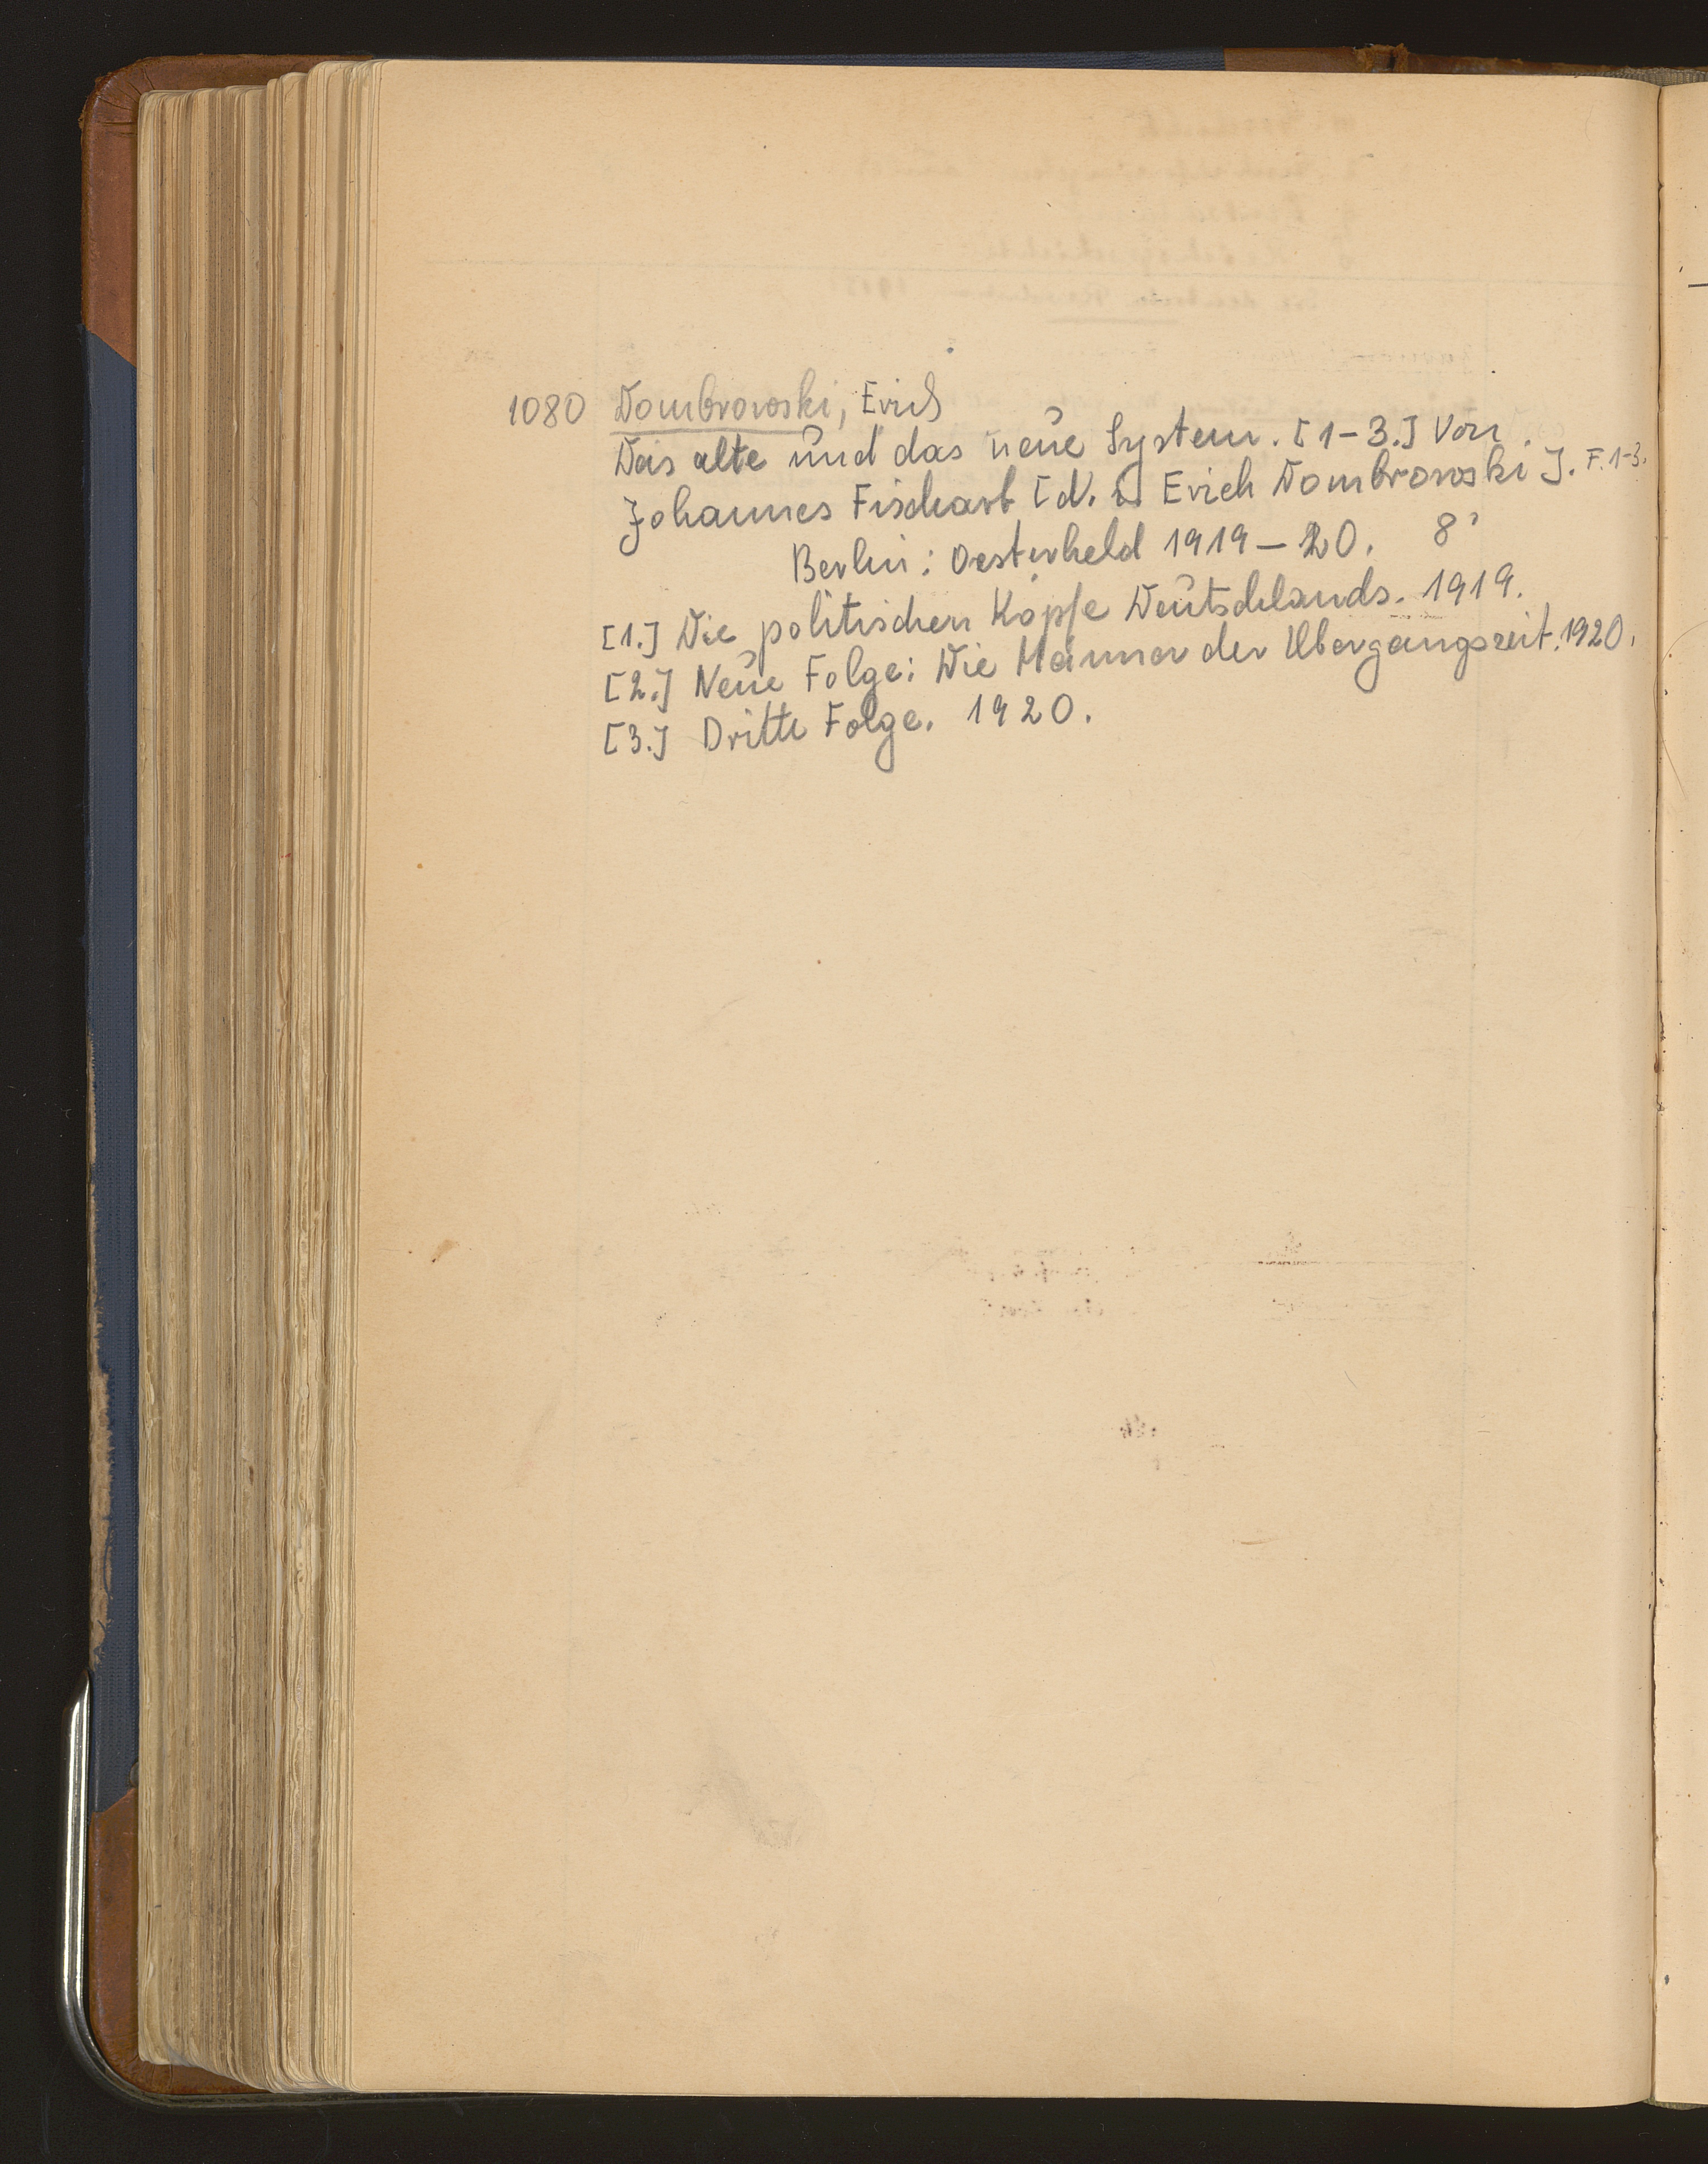 1080 Dombrowski, Erich
Das alte und das neue System. [1-3.] Von
Johannes Fischart [d. i. Erich Dombrowski]. F. 1-3.
Berlin: Oesterheld 1919-20. 8°
[1.] Die politischen Köpfe Deutschlands. 1919.
[2.] Neue Folge: Die Männer der Übergangszeit. 1920.
[3.] Dritte Folge. 1920.